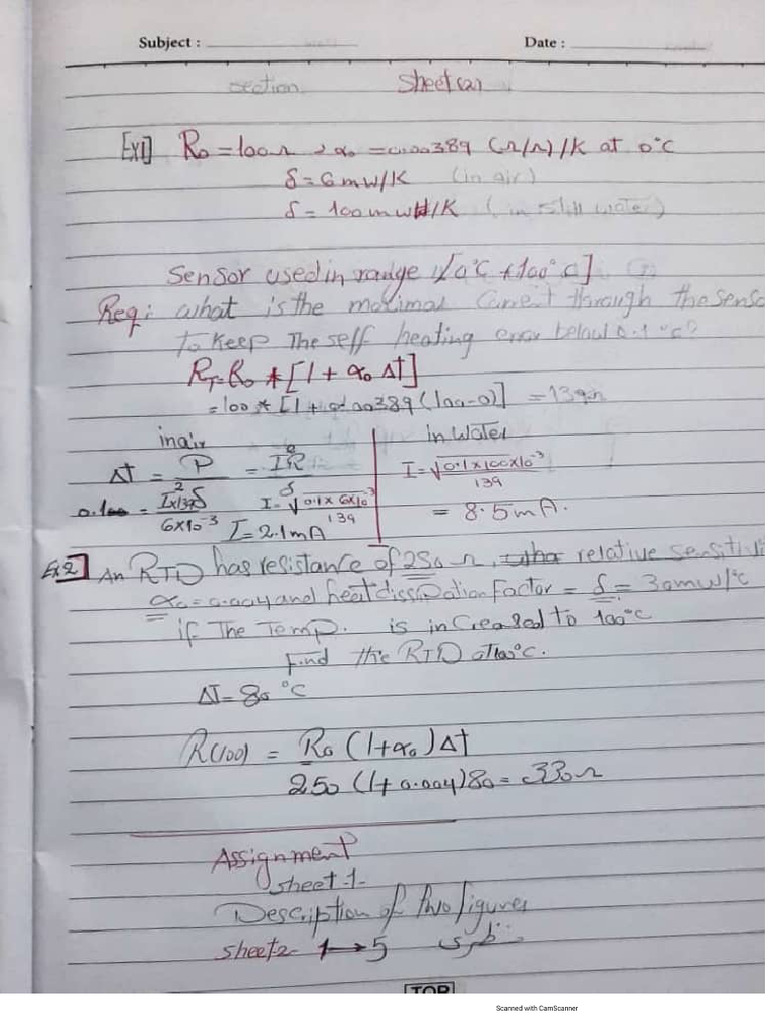 Subject :
Date :
section Sheet (2)
Ex1] R₀ = 100Ω , α₀ = 0.00389 (Ω/Ω)/K at 0°C
δ = 6mW/K (in air)
δ = 100mW/K (in still water)
Sensor used in range [0°C +100°C]
Req: what is the maximal Current through the senso
to keep The self heating error below 0.1 °C?
R_T = R₀ * [1 + α₀ Δt]
= 100 * [1 + 0.00389 (100-0)] = 139Ω
in air
ΔT = P/δ = I²R/δ
0.100 = I²×139/6×10⁻³ I = √(0.1×6×10⁻³/139)
I = 2.1mA
in Water
I = √(0.1×100×10⁻³/139)
= 8.5mA.
Ex2] An RTD has resistance of 250 Ω, relative sensitivi
α₀ = 0.004 and heat dissipation Factor = δ = 30mW/°C
if The Temp. is increased to 100°C
Find the RTD at 100°C.
ΔT = 80 °C
R(100) = R₀ (1+α₀)Δt
250 (1+0.004)80 = 330Ω
Assignment
sheet 1-
Description of two figures
sheet2- 1→5 نظرى
TOP
Scanned with CamScanner